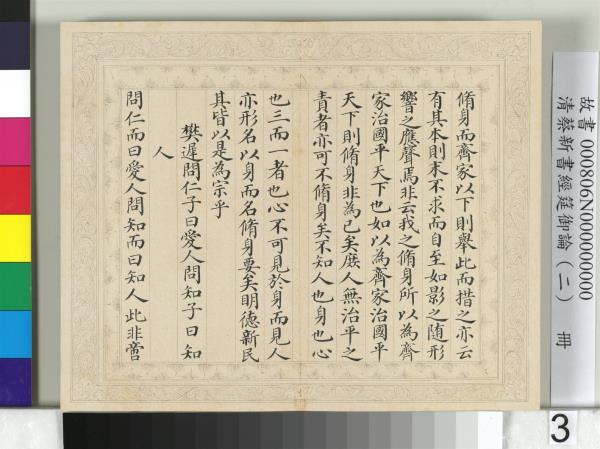 脩身而齊家以下則舉此而措之亦云
有其本則末不求而自至如影之随形
響之應聲焉非云我之脩身所以為齊
家治國平天下也如以為齊家治國平
天下則脩身非為己矣庶人無治平之
責者亦可不脩身矣不知人也身也心
也三而一者也心不可見於身而見人
亦形名以身而名脩身要矣明德新民
其皆以是為宗乎
樊遲問仁子曰愛人問知子曰知
人
問仁而曰愛人問知而曰知人此非啻
故書 000806N000000000
清蔡新書經筵御論（二） 冊
3